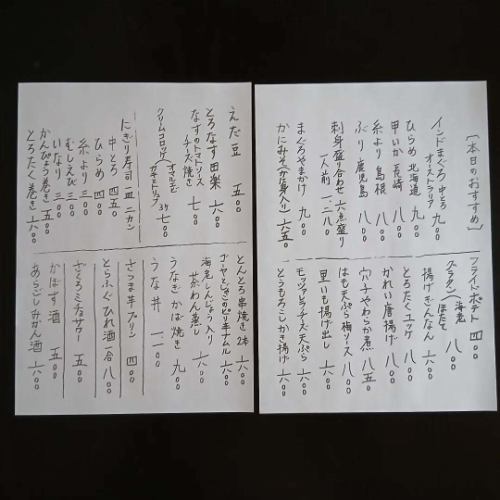 〔本日のおすすめ〕
インドまぐろ 中とろ 九〇〇
オーストラリア
ひらめ 北海道 九〇〇
甲いか 長崎 八〇〇
糸より 島根 八〇〇
ぶり 鹿児島 八〇〇
刺身盛り合わせ 六点盛り
一人前 一、二八〇
まぐろやまかけ 九〇〇
かにみそ(かに身入り) 六五〇
フライドポテト 四〇〇
グラタン(海老 ほたて 八〇〇
揚げぎんなん 六〇〇
とろたくユッケ 八〇〇
かれい唐揚げ 八〇〇
穴子やわらか煮 八五〇
はも天ぷら梅ソース 八〇〇
里いも揚げ出し 六〇〇
モッツァレラチーズ天ぷら 六〇〇
とうもろこしかき揚げ 六〇〇
えだ豆 五〇〇
とろなす田楽 六〇〇
なすのトマトソース
チーズ焼き 七〇〇
クリームコロッケ
にぎり寿司 一皿 二カン
中とろ 四五〇
ひらめ 四〇〇
糸より 三〇〇
むしえび 三〇〇
いなり 三〇〇
かんぴょう巻き 五〇〇
とろたく巻き 六〇〇
とんとろ串焼き 2本 六〇〇
ゴーヤときのこのピリ辛ナムル 六〇〇
海老しんじょう入り
茶わん蒸し 六〇〇
うなぎかば焼き 九〇〇
うな丼 一一〇〇
さつま芋プリン 四〇〇
とらふぐひれ酒 一合 八〇〇
ざくろミルサワー 五〇〇
かぼす酒 五〇〇
あらごしみかん酒 六〇〇